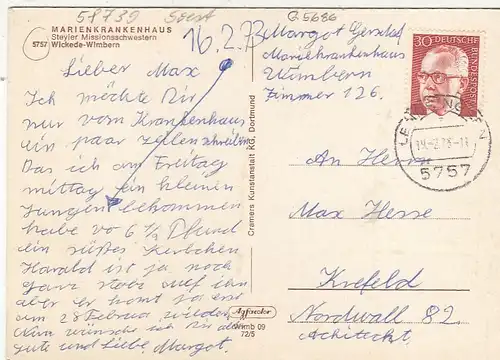 58739 Soest
G 5686
MARIENKRANKENHAUS
Steyler Missionsschwestern
5757 Wickede-Wimbern
16.2.73
Lieber Max
Ich möchte Dir
nur vom Krankenhaus
ein paar Zeilen schreiben
Das ich am Freitag
mittag ein kleinen
Jungen bekommen
habe vo 6 1/2 Pfund
ein süßes Kerlchen
Harald ist ja noch
ganz stolz auf ihn
aber er komt ja erst
am 28 Februa wieder
Nun wünsche ich Dir alles
gute und Liebe Margot.
Cramers Kunstanstalt KG, Dortmund
Agfacolor
Wimb 09
72/5
Margot
Marienkrankenhaus
Wimbern
Zimmer 126.
30 DEUTSCHE BUNDESPOST
19.-2.73-11
5757
An Herrn
Max Hesse
Krefeld
Nordwall 82
Achiteckt